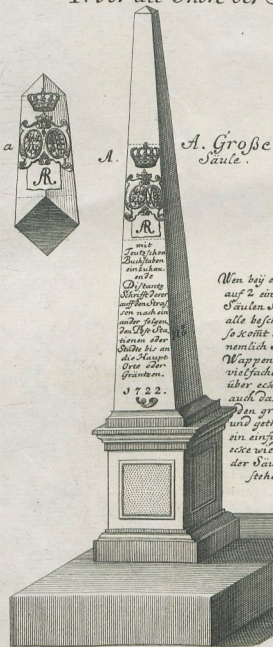 a
A.
A. Große
Säule.
AR
AR
mit
Teutschen
Buchstaben
einzuhau,
ende
Distantz
Schrifft derer
auff den Stras,
sen nach ein
ander folgen
den Post Sta,
tionen oder
Städte bis an
die Haupt
Orte oder
Gräntzen.
1722.
Wen beÿ e
auf 2 ein
Säulen
alle besch
so komt
nemlich
Wappen
vielfache
über eck
auch da
den gr
und get
ein einf
ecke wie
der Säu
steh